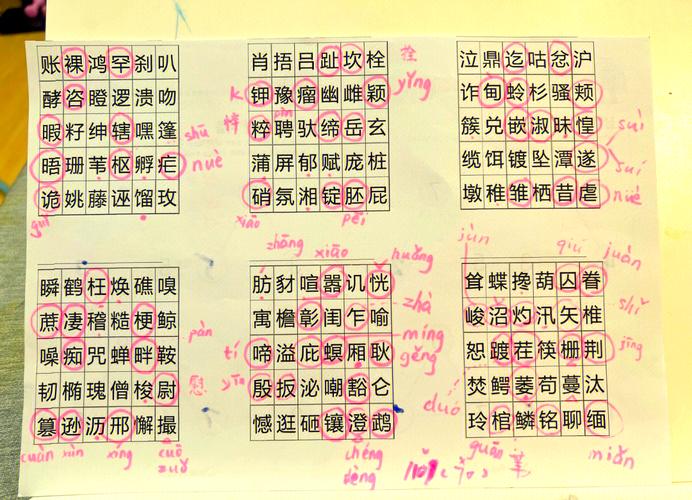 账裸鸿罕刹叭
酵咨瞪逻溃吻
暇籽绅辖嘿篷
shū
晤珊苇枢孵疟
nuè
诡姚藤诬馏玫
guǐ
肖捂吕趾坎栓
拴
钾豫瘤幽雌颖
yǐng
K
粹聘驮缔岳玄
悴
pìn
蒲屏郁赋庞桩
硝氛湘锭胚屉
xiāo
pēi
泣鼎迄咕忿沪
诈甸蛉杉骚颊
簇兑嵌淑昧惶
suì
缆饵镀坠潭遂
suí
墩稚雏栖昔虐
nüè
瞬鹤枉焕礁嗅
蔗凄稽糙梗鲸
pàn
噪痴咒蝉畔鞍
韧椭瑰僧梭尉
慰
篡逊沥邢懈撮
cuàn xùn xíng cuō
zuǒ
zhāng xiāo huǎng
肪豺喧嚣讥恍
寓檐彰闺乍喻
zhà
míng
啼溢庇螟厢耿
tí
gěng
殷扳泌嘲豁仑
yīn
憾逛砸镶澄鹉
chéng
dèng
jùn qiú juàn
耸蝶搀葫囚眷
峻沼灼汛矢椎
shǐ
恕踱茬筷栅荆
jīng
duó
焚鳄萎苟蔓汰
玲棺鳞铭聊缅
guān
miǎn